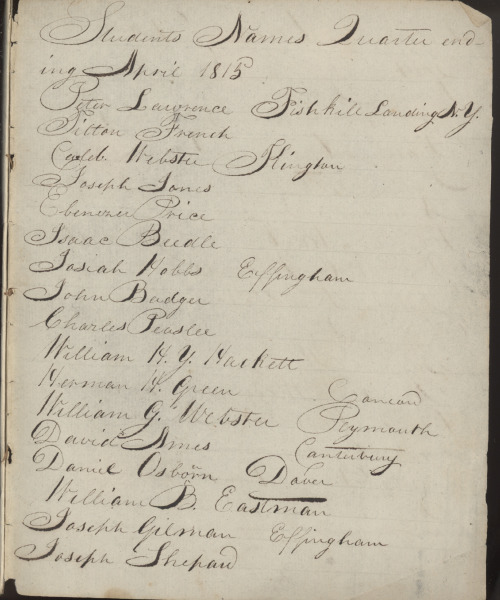 Students Names Quarter end-
ing April 1815
Peter Lawrence Fishkill Landing N.Y.
Titton French
Caleb Webster
Joseph Jones
Ebenezer Price
Isaac Beedle
Josiah Hobbs Effingham
John Badger
Charles Peaslee
William H. Y. Hackett
Herman H. Green
William G. Webster Plymouth
David Ames Canterbury
Daniel Osborn Dover
William B. Eastman
Joseph Gilman Effingham
Joseph Shepard